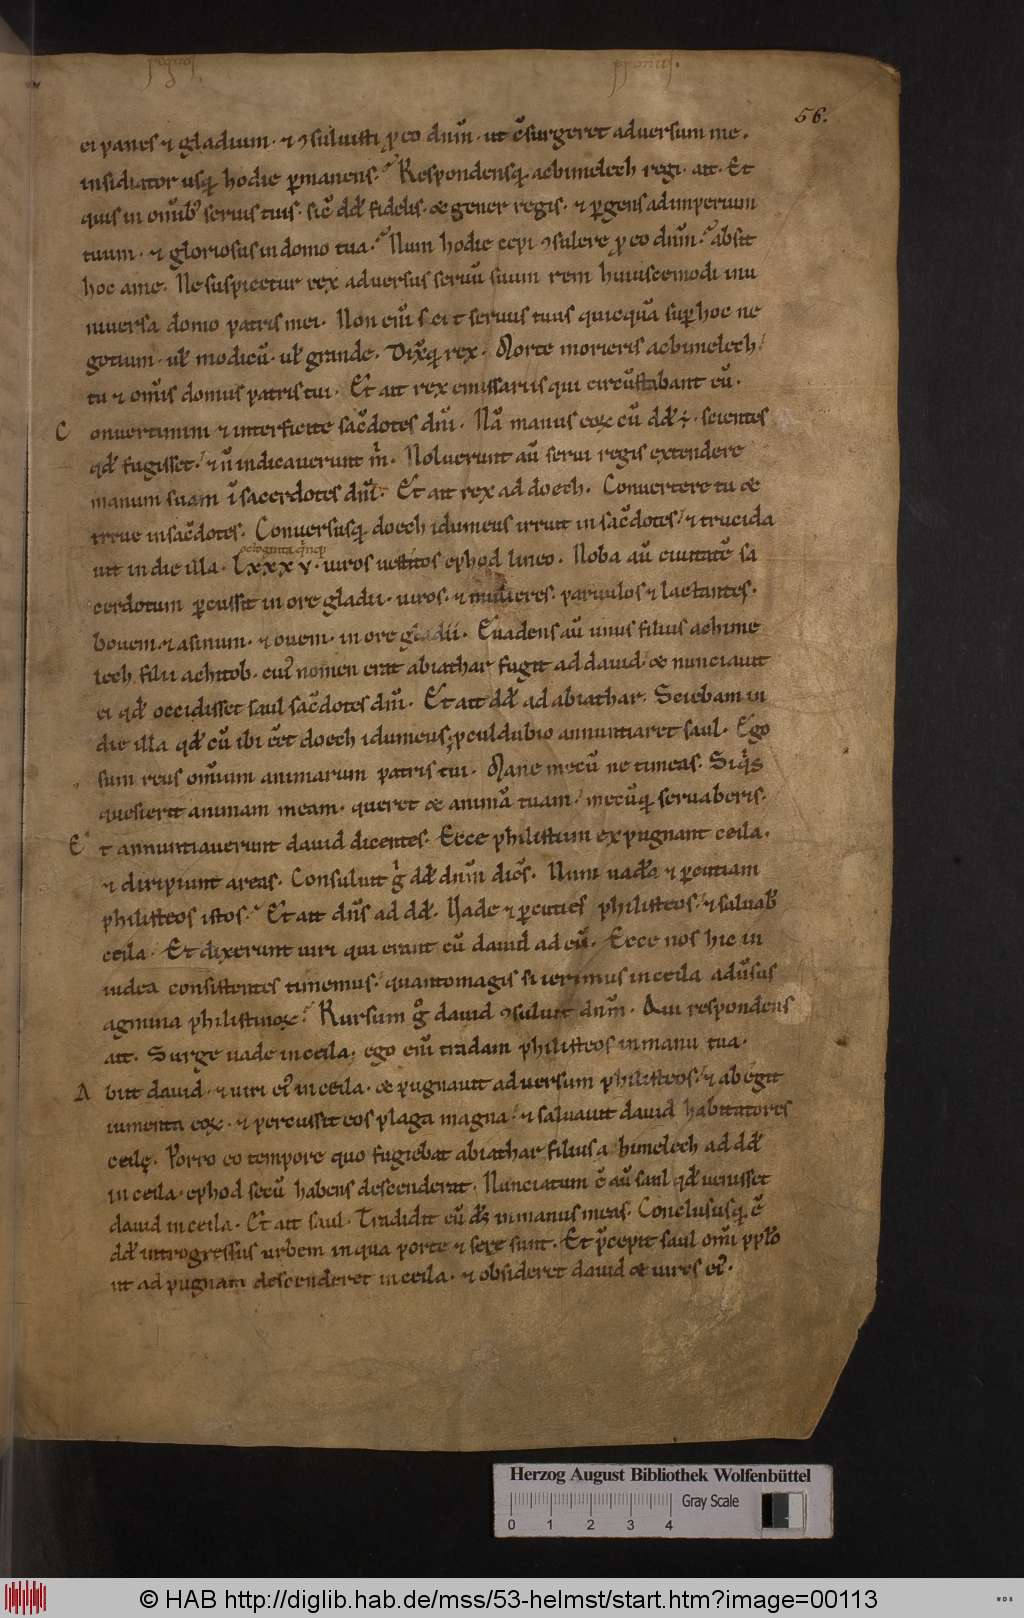 56.
ei panes ⁊ gladium · ⁊ ꝯsuluisti ꝓ eo dnm̄ · ut c̄surgeret adversum me ·
insidiator usq; hodie ꝑmanens. Respondensq; achimelech regi · ait · Et
quis in omīb; servis tuis · sic̄ dd̄ fidelis · & gener regis · ⁊ ꝑgens ad imperium
tuum · ⁊ gloriosus in domo tua. Num hodie cepi ꝯsulere ꝓ eo dnm̄. absit
hoc a me. Ne suspicetur rex adversus servū suum rem huiuscemodi in u
niuersa domo patris mei. Non enī scit servus tuus quicquā suꝑ hoc ne
gotium · ul̄ modicū · ul̄ grande. Dixq; rex. Morte morieris achimelech
tu ⁊ omīs domus patris tui. Et ait rex emissariis qui circūstabant eū ·
C onvertimini ⁊ interficite sac̄dotes dnī. Nā manus eoꝝ cū dd̄ ē · scientes
qd̄ fugisset ⁊ n̄ indicaverunt m̄. Noluerunt aū servi regis extendere
manum suam ī sacerdotes dnī. Et ait rex ad doech. Convertere tu &
irrue in sac̄dotes. Conversusq; doech idumeus irruit in sac̄dotes ⁊ trucida
vit in die illa · Lxxxv · viros vestitos ephod lineo. Noba aū civitatē sa
cerdotum ꝑcussit in ore gladii · viros · ⁊ mulieres · parvulos ⁊ lactantes ·
bovem · ⁊ asinum · ⁊ ovem · in ore gladii. Evadens aū unus filius achime
lech filii achitob · cui; nomen erat abiathar fugit ad david · & nunciavit
ei qd̄ occidisset saul sac̄dotes dnī. Et ait dd̄ ad abiathar. Sciebam in
die illa qd̄ cū ibi eēt doech idumeus; ꝓculdubio annuntiaret saul. Ego
sum reus omīum animarum patris tui. Mane mecū ne timeas. Siqis
quesierit animam meam · queret & animā tuam mecūq; servaberis.
E t annuntiaverunt david dicentes. Ecce philistiim expugnant ceila.
⁊ diripiunt areas. Consuluit g dd̄ dnm̄ dicēs. Num vadā ⁊ ꝑcutiam
philisteos istos. Et ait dns̄ ad dd̄. Vade ⁊ ꝑcuties philisteos ⁊ salvab
ceila. Et dixerunt viri qui erant cū david ad eū. Ecce nos hic in
iudea consistentes timemus quantomagis si ierimus in ceila adūsus
agmina philistinoꝝ. Rursum g david ꝯsuluit dnm̄. Qui respondens
ait. Surge vade in ceila. ego enī tradam philisteos in manu tua.
A biit david · ⁊ viri ei; in ceila · & pugnavit adversum philisteos ⁊ abegit
iumenta eoꝝ · ⁊ percussit eos plaga magna ⁊ salvavit david habitatores
ceilę. Porro eo tempore quo fugiebat abiathar filius achimelech ad dd̄
in ceila · ephod secū habens descenderat. Nunciatum ē aū saul qd̄ venisset
david in ceila. Et ait saul. Tradidit eū ds̄ in manus meas. Conclususq; ē
dd̄ introgressus urbem in qua porte ⁊ sere sunt. Et p̄cepit saul omī ppl̄o
ut ad pugnam descenderet in ceila · ⁊ obsideret david & viros ei;.
Herzog August Bibliothek Wolfenbüttel
Gray Scale
0 1 2 3 4
© HAB http://diglib.hab.de/mss/53-helmst/start.htm?image=00113